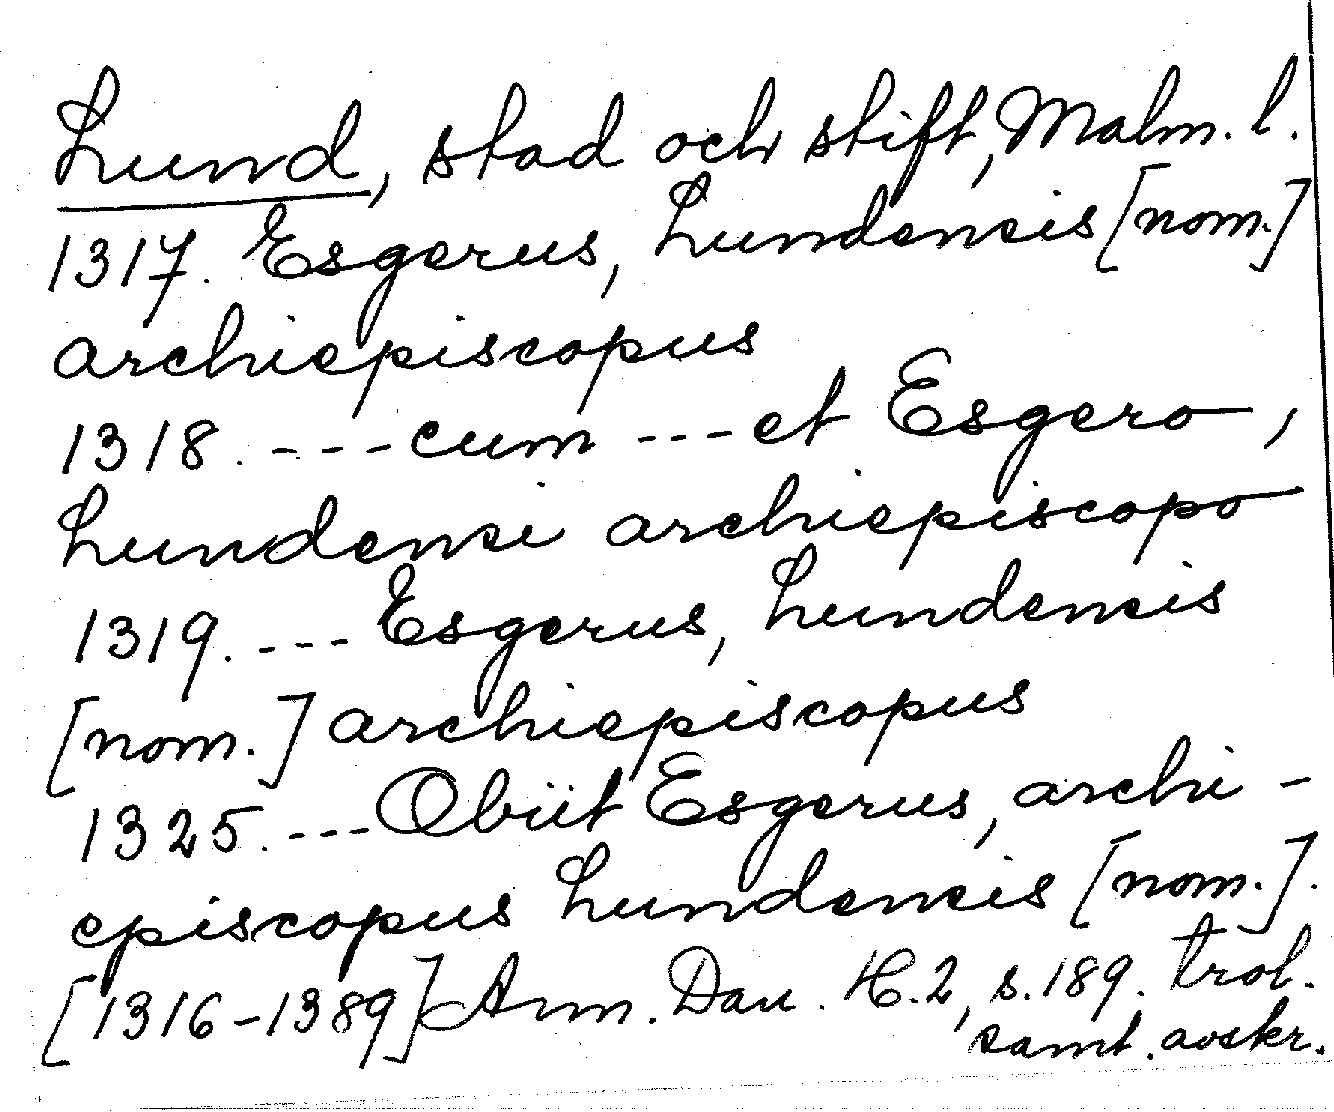 Lund, stad och stift, Malm. l.
1317. Esgerus, Lundensis [nom.]
archiepiscopus
1318. --- cum --- et Esgero,
Lundensi archiepiscopo
1319. --- Esgerus, Lundensis
[nom.] archiepiscopus
1325. --- Obiit Esgerus, archi-
episcopus Lundensis [nom.].
[1316-1389] Ann. Dan. H. 2, s. 189. trol.
samt. avskr.